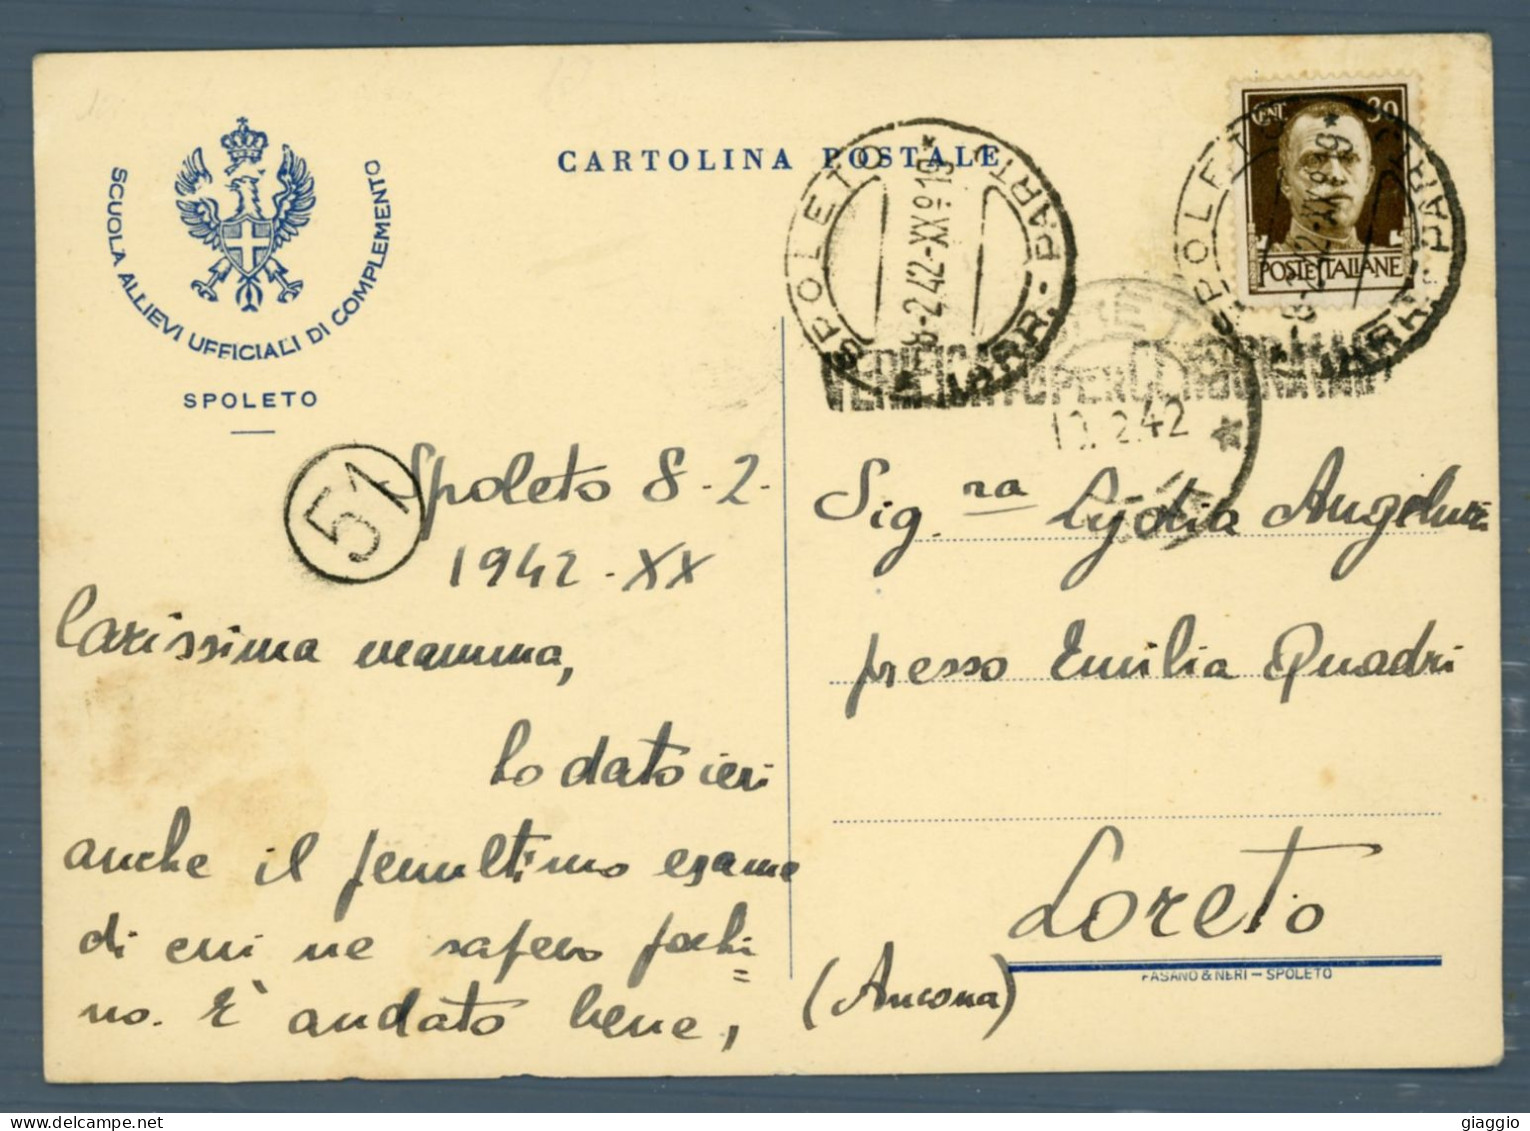 SCUOLA ALLIEVI UFFICIALI DI COMPLEMENTO
SPOLETO
CARTOLINA POSTALE
SPOLETO
ARR. - PART.
8-2.42-XXº 19
CENT. 30
POSTE ITALIANE
SPOLETO
ARR. - PART.
VERIFICATO PER CENSURA
10.2.42
51
Spoleto 8-2-
1942-XX
Carissima mamma,
ho dato ieri
anche il penultimo esame
di cui ne sapevo pochi=
no. E' andato bene,
Sig.ra Lydia
presso Emilia Quadri
Loreto
(Ancona)
FASANO & NERI - SPOLETO
giaggio